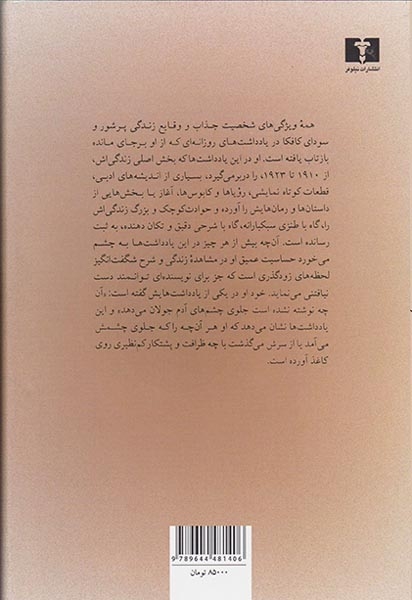 انتشارات نیلوفر
همهٔ ویژگی‌های شخصیت جذاب و وقایع زندگی پرشور و
سودای کافکا در یادداشت‌های روزانه‌ای که از او برجای مانده
بازتاب یافته است. او در این یادداشت‌ها که بخش اصلی زندگی‌اش،
از ۱۹۱۰ تا ۱۹۲۳، را دربرمی‌گیرد، بسیاری از اندیشه‌های ادبی،
قطعات کوتاه نمایشی، رؤیاها و کابوس‌ها، آغاز یا بخش‌هایی از
داستان‌ها و رمان‌هایش را آورده و حوادث کوچک و بزرگ زندگی‌اش
را، گاه با طنزی سبکبارانه، گاه با شرحی دقیق و تکان دهنده، به ثبت
رسانده است. آن‌چه بیش از هر چیز در این یادداشت‌ها به چشم
می‌خورد حساسیت عمیق او در مشاهدهٔ زندگی و شرح شگفت‌انگیز
لحظه‌های زودگذری است که جز برای نویسنده‌ای توانمند دست
نیافتنی می‌نماید. خود او در یکی از یادداشت‌هایش گفته است: «آن
چه نوشته نشده است جلوی چشم‌های آدم جولان می‌دهد» و این
یادداشت‌ها نشان می‌دهد که او هر آن‌چه را که جلوی چشمش
می‌آمد یا از سرش می‌گذشت با چه ظرافت و پشتکار کم‌نظیری روی
کاغذ آورده است.
9 789644 481406
۸۵۰۰۰ تومان